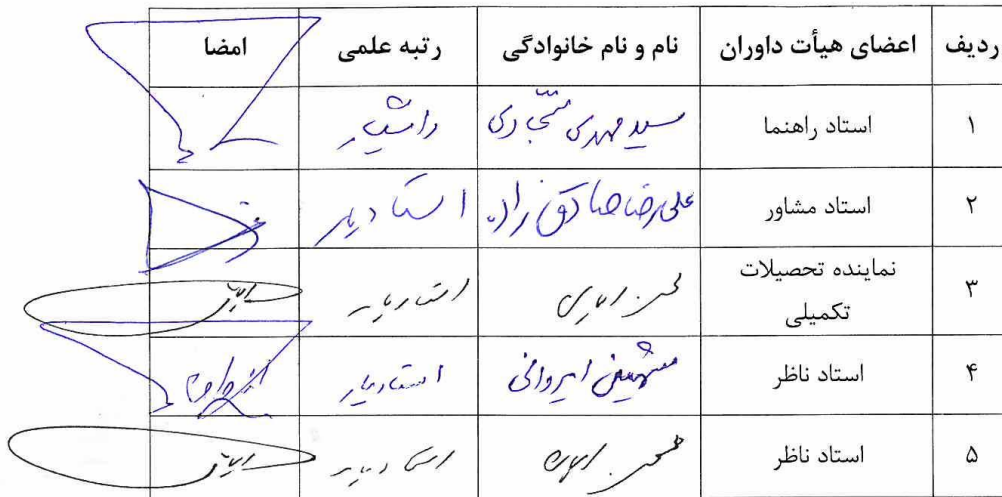 ردیف اعضای هیأت داوران نام و نام خانوادگی رتبه علمی امضا
۱ استاد راهنما سید مهدی سجادی دانشیار
۲ استاد مشاور علیرضا صادق زاده استادیار
۳ نماینده تحصیلات تکمیلی محسن ایمانی استادیار
۴ استاد ناظر شهین ایروانی استادیار
۵ استاد ناظر محسن ایمانی استادیار